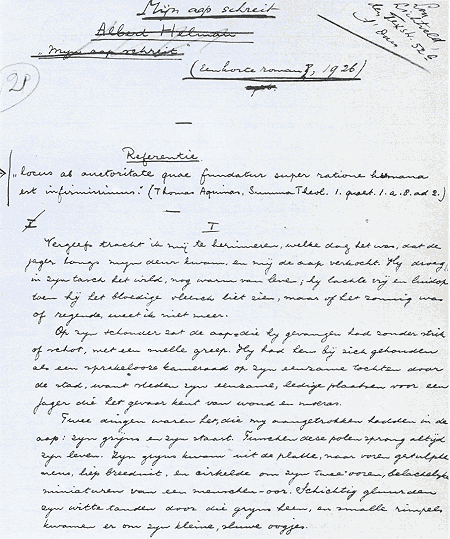 Mijn aap schreit
Albert Helman
"Mijn aap schreit"
(Een korte roman, 1926)
28
Referentie.
"locus ab auctoritate quae fundatur super ratione humana
est infirmissimus." (Thomas Aquinas, Summa Theol. 1. quaest. 1. a. 8. ad 2.)
I
I
Vergeefs tracht ik mij te herinneren, welke dag het was, dat de
jager langs mijn deur kwam, en mij de aap verkocht. Hij droeg
in zijn tasch het wild, nog warm van leven; hij lachte vrij en luidop
toen hij het bloedige vleesch liet zien, maar of het zonnig was
of regende, weet ik niet meer.
Op zijn schouder zat de aap, die hij gevangen had zonder strik
of schot, met een snelle greep. Hij had hem bij zich gehouden
als een sprakelooze kameraad op zijn eenzame tochten door
de stad, want steden zijn eenzame, ledige plaatsen voor een
jager die het gevaar kent van woud en
Twee dingen waren het, die mij aangetrokken hadden in de
aap: zijn grijns en zijn staart. Tusschen deze polen sprong altijd
zijn leven. Zijn grijns kwam uit de platte, naar voren gestulpte
neus, liep breeduit, en cirkelde om zijn twee ooren, belachelijke
miniaturen van een menschen-oor. Schichtig gluurden
zijn witte tanden door die grijns heen, en smalle rimpels
kwamen er om zijn kleine, sluwe oogjes.